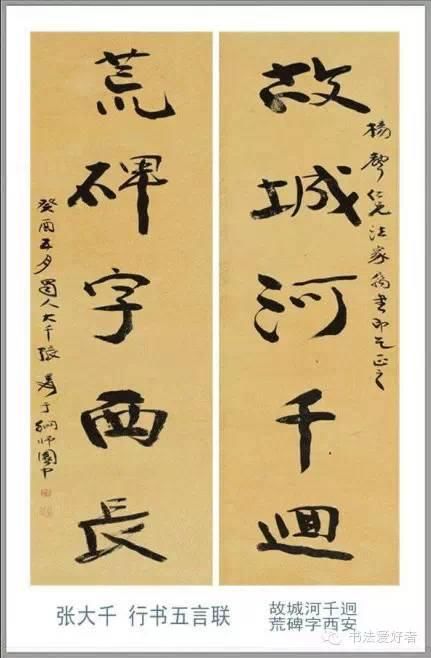 故城河千迴
楊聲仁兄法家書即乞正之
荒碑字西長
癸酉五月蜀人大千張爰于網師園中
张大千 行书五言联
故城河千迴
荒碑字西安
书法爱好者